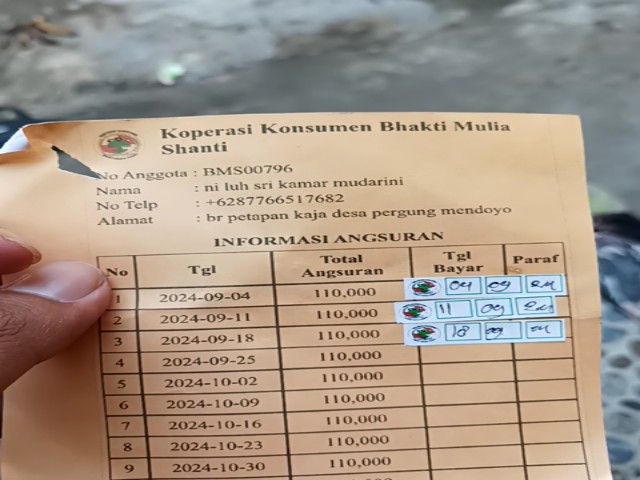 Koperasi Konsumen Bhakti Mulia
Shanti
No Anggota : BMS00796
Nama : ni luh sri kamar mudarini
No Telp : +6287766517682
Alamat : br petapan kaja desa pergung mendoyo
INFORMASI ANGSURAN
No Tgl Total Angsuran Tgl Bayar Paraf
1 2024-09-04 110,000 04 09
2 2024-09-11 110,000 11 09
3 2024-09-18 110,000 18 09
4 2024-09-25 110,000
5 2024-10-02 110,000
6 2024-10-09 110,000
7 2024-10-16 110,000
8 2024-10-23 110,000
9 2024-10-30 110,000